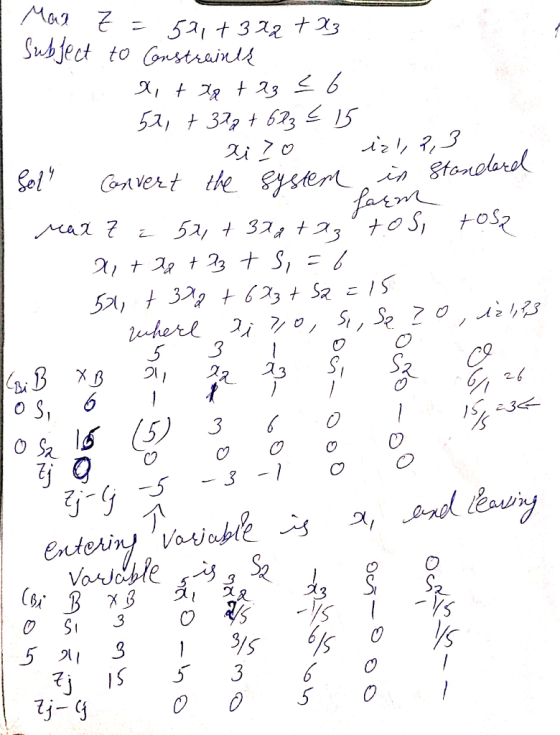 Max Z = 5x₁ + 3x₂ + x₃
Subject to Constraints
x₁ + x₂ + x₃ ≤ 6
5x₁ + 3x₂ + 6x₃ ≤ 15
xi ≥ 0 i=1, 2, 3
Solⁿ Convert the system in standard form
Max Z = 5x₁ + 3x₂ + x₃ + 0S₁ + 0S₂
x₁ + x₂ + x₃ + S₁ = 6
5x₁ + 3x₂ + 6x₃ + S₂ = 15
where xi ≥ 0, S₁, S₂ ≥ 0, i=1,2,3
5 3 1 0 0
CBi B XB x₁ x₂ x₃ S₁ S₂ θ
0 S₁ 6 1 1 1 1 0 6/1 = 6
0 S₂ 15 (5) 3 6 0 1 15/5 = 3 ←
Zj 0 0 0 0 0 0
Zj - Cj -5 -3 -1 0 0
↑
entering variable is x₁ and leaving
variable is S₂
5 3 1 0 0
CBi B XB x₁ x₂ x₃ S₁ S₂
0 S₁ 3 0 2/5 -1/5 1 -1/5
5 x₁ 3 1 3/5 6/5 0 1/5
Zj 15 5 3 6 0 1
Zj - Cj 0 0 5 0 1